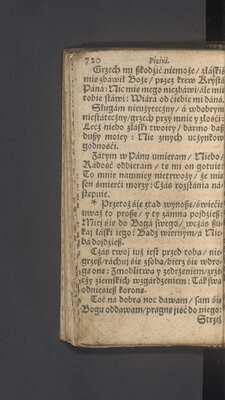 720 Pieśni.
Grzech mi szkodzić niemoże/ złáski
mię zbáwił Boże/ przez krew Krystá
Páná: Nic mię niego niezbáwi/ ále mi
tobie stáwi: Wiárá od ciebie mi dána.
Sługam nieużyteczny/ á wdobrym
niestáteczny/ grzech przy mnie y złości:
Lecz niebo złáski twoiey/ dármo dasz
duszy moiey: Nie zmych uczynkow
godności.
Zátym w Pánu umieram/ Niebo/
Rádość odbieram/ te mi on gotuie:
To mnie namnicy nietrwoży/ że mię
sen śmierci morzy: Czás rozstánia ná-
stępuie.
* Przetoż iże ztąd wynoszę/ świecie
uważ to proszę/ y ty zámną poydziesz:
Miey się do Bogá swego/ wczás szu-
kay łáski iego: Bądź wiernym/ á Nie-
bá doydziesz.
Czás twoy iuż iest przed tobą/ nie-
grzesz/ ráchuy się zsobą/ bierz się wdro-
gę onę: Zmodlitwą y zdrzeniem/ rze-
czy ziemskich wzgárdzeniem: Ták swą
odnieśiesz koronę.
Toć ná dobrą noc dawam/ sam się
Bogu oddawam/ prágnę iść do niego:
Strzeż